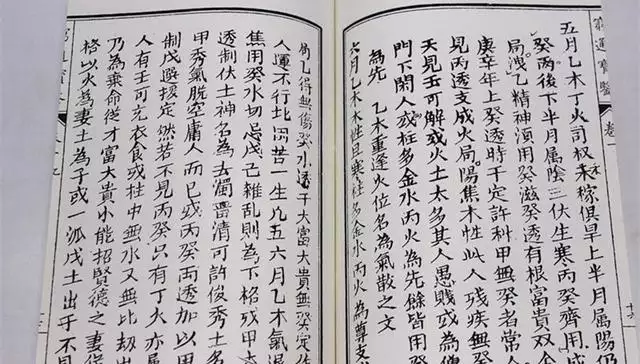 窮通寶鑑
卷一
五月乙木丁火司权禾稼俱旱上半月属陽乃
癸丙後下半月属陰三伏生寒丙癸齊用
局洩乙精神須用癸滋癸透有根富貴双全
庚辛年上癸透時干定許科甲無癸者常
見丙透支成火局陽焦木性此人残疾無癸
夭見壬可解或火土太多其人愚賤或為僧
門下閑人或柱多金水丙火為先餘皆用
為先 乙木重逢火位名為氣散之文
六月乙木木性且寒柱多金水丙火為尊支
乙得無傷癸水透干大富大貴無癸定作
人運不行北困苦一生凡五六月乙木氣
焦用癸水切忌戊己雜乱則為下格残甲
透制伏土神名為去濁畱清可許俊秀士多
甲秀氣脱空庸人而已或丙癸両透加以甲
制戊選拔定然若不見丙癸只有丁火亦属
人有壬可充衣食或柱中無水又無比劫出
乃為棄命從才富大貴小能招賢德之妻
格以火為妻土為子或一派戊土出干不見